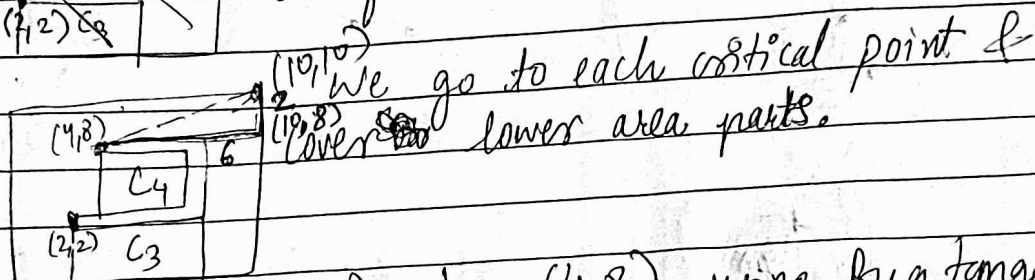 (2,2) C3
(10,10)
We go to each critical point &
2
(4,8)
(10,8)
cover lower area parts.
6
C4
(2,2)
C3
using